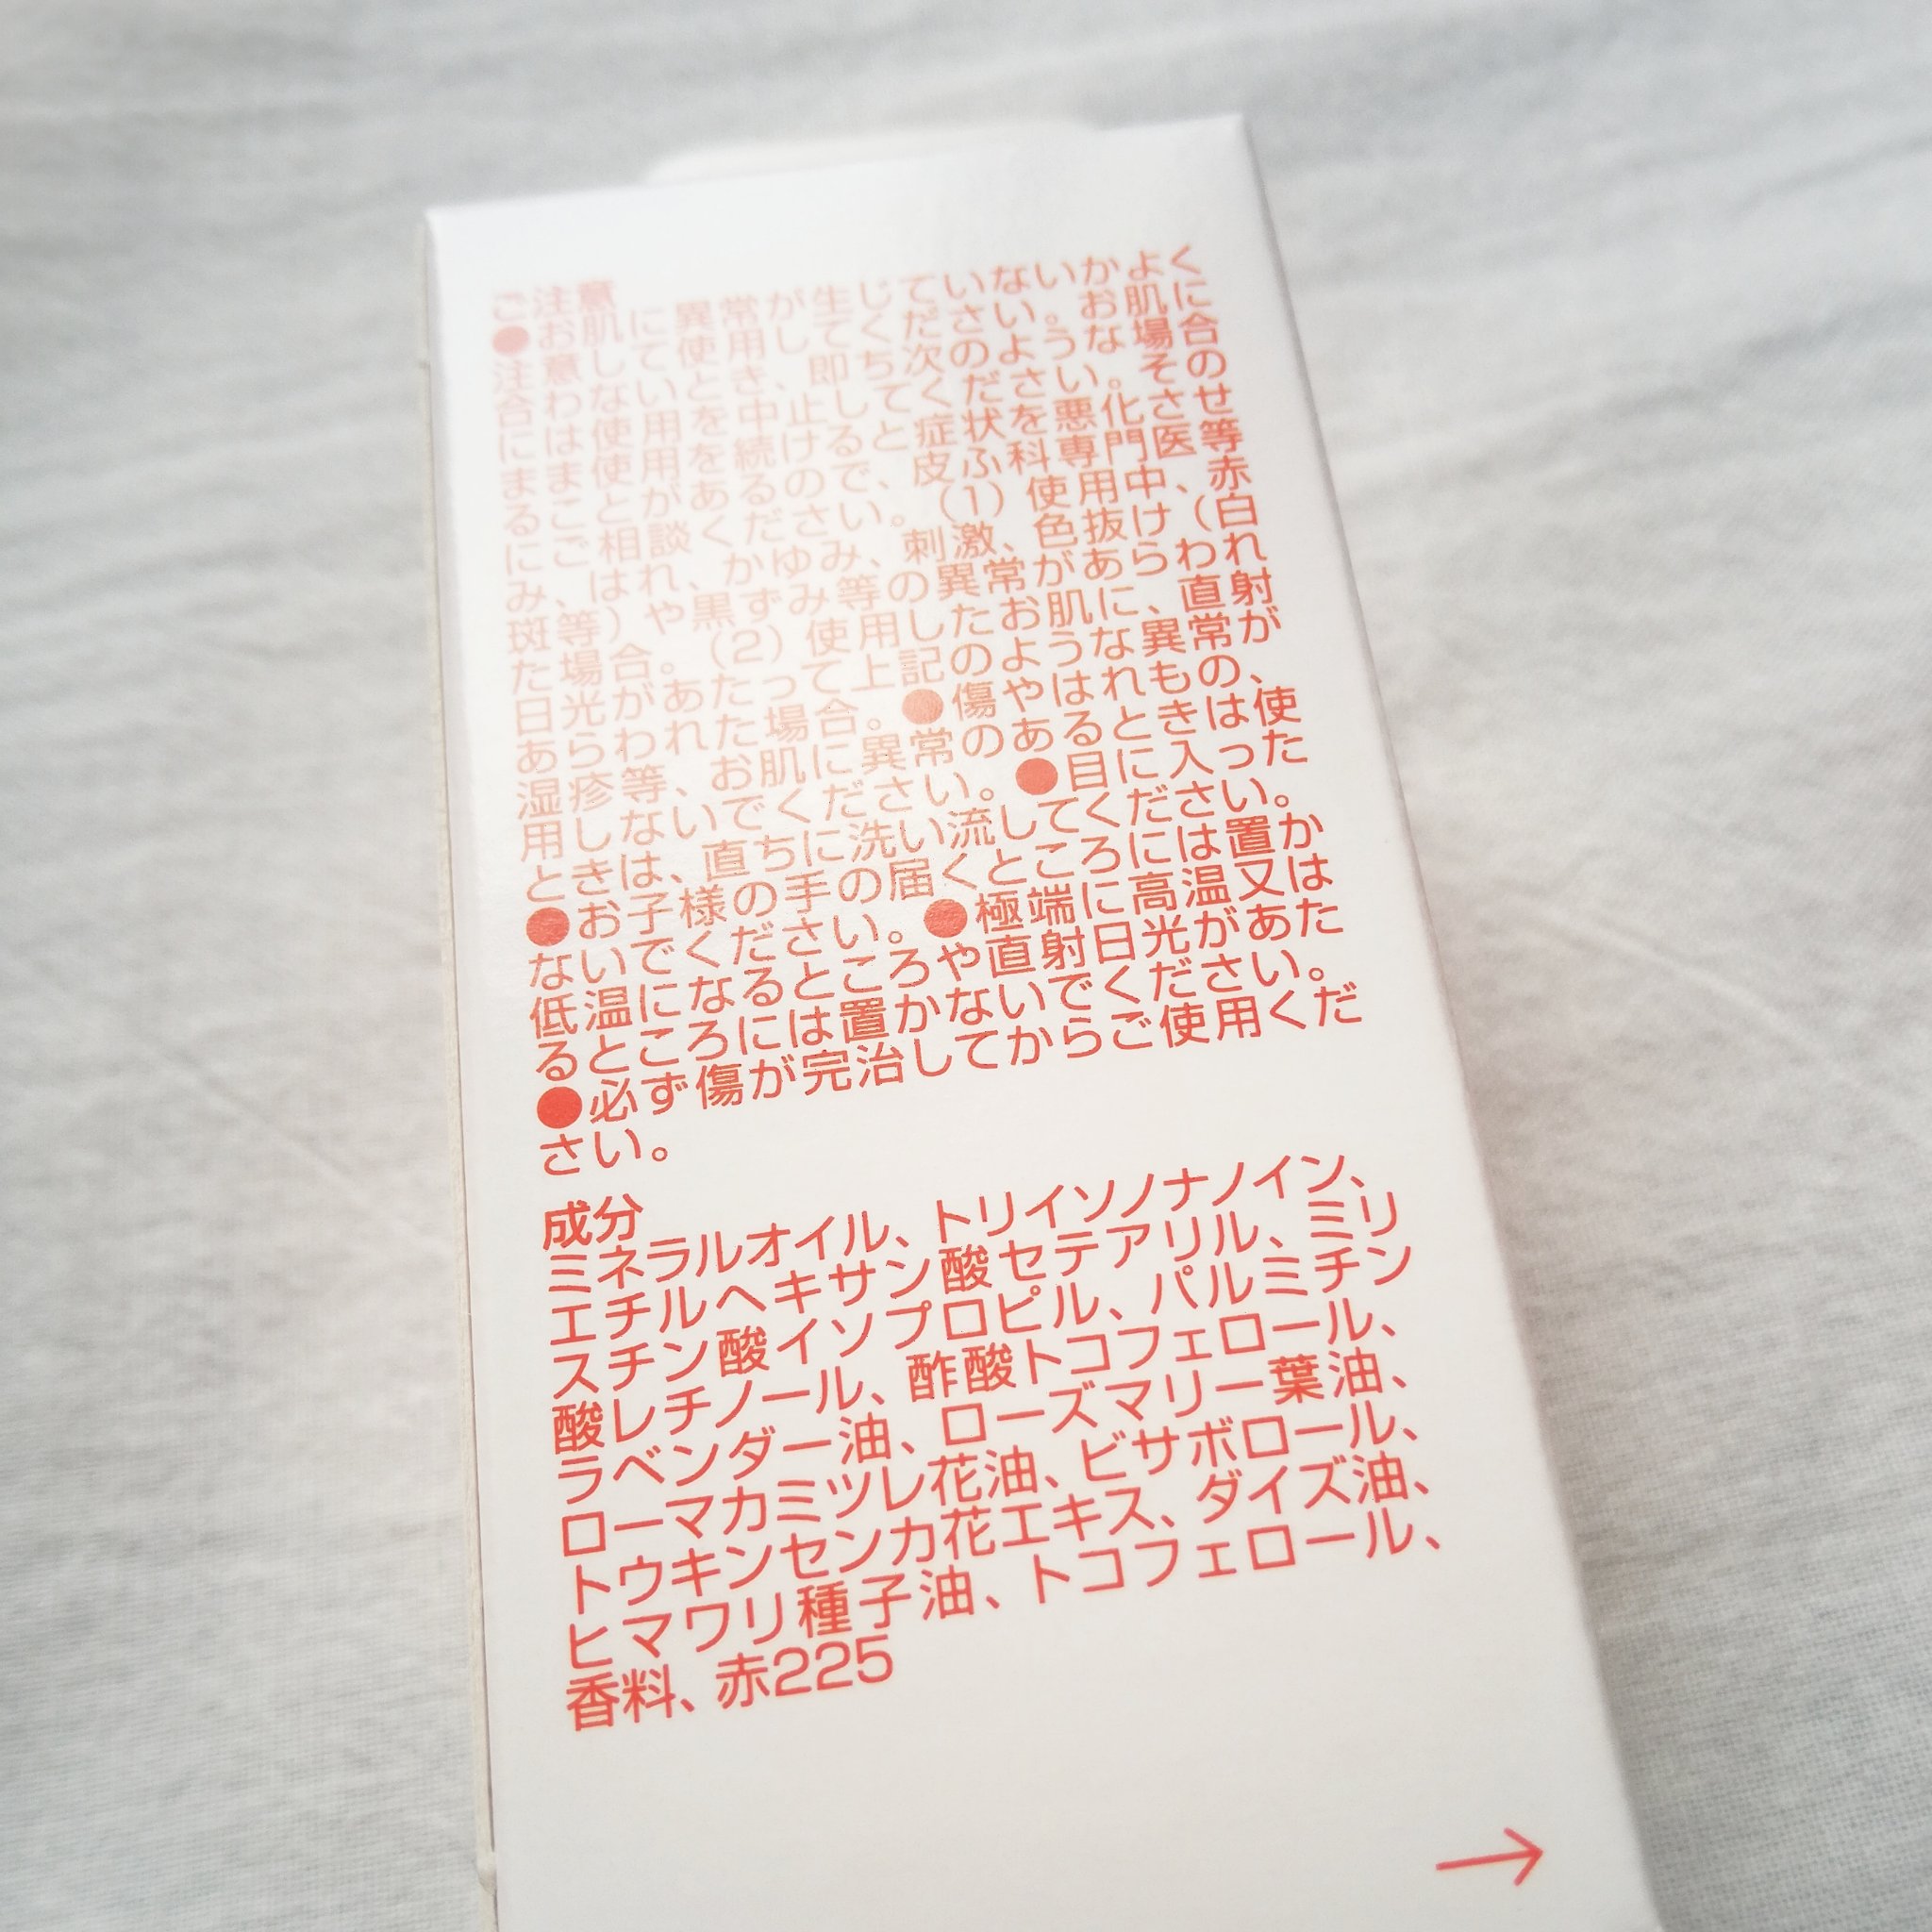 ご注意
●お肌に異常が生じていないかよく
注意して使用してください。お肌に
合わないとき、即ち次のような場合
には使用を中止してください。その
まま使用を続けると症状を悪化させ
ることがあるので、皮ふ科専門医等
にご相談ください。(1)使用中、赤
み、はれ、かゆみ、刺激、色抜け(白
斑等)や黒ずみ等の異常があらわれ
た場合。(2)使用したお肌に、直射
日光があたって上記のような異常が
あらわれた場合。●傷やはれもの、
湿疹等、お肌に異常のあるときは使
用しないでください。●目に入った
ときは、直ちに洗い流してください。
●お子様の手の届くところには置か
ないでください。●極端に高温又は
低温になるところや直射日光があた
るところには置かないでください。
●必ず傷が完治してからご使用くだ
さい。
成分
ミネラルオイル、トリイソノナノイン、
エチルヘキサン酸セテアリル、ミリ
スチン酸イソプロピル、パルミチン
酸レチノール、酢酸トコフェロール、
ラベンダー油、ローズマリー葉油、
ローマカミツレ花油、ビサボロール、
トウキンセンカ花エキス、ダイズ油、
ヒマワリ種子油、トコフェロール、
香料、赤225
→